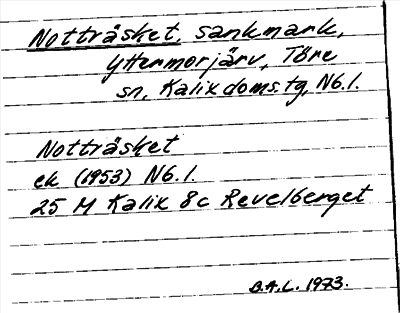 Notträsket, sankmark,
Yttermorjärv, Töre
sn, Kalix doms.tg, Nb.l.
Notträsket
ek (1953) Nb.l.
25 M Kalix 8c Revelberget
B.A.L. 1973.